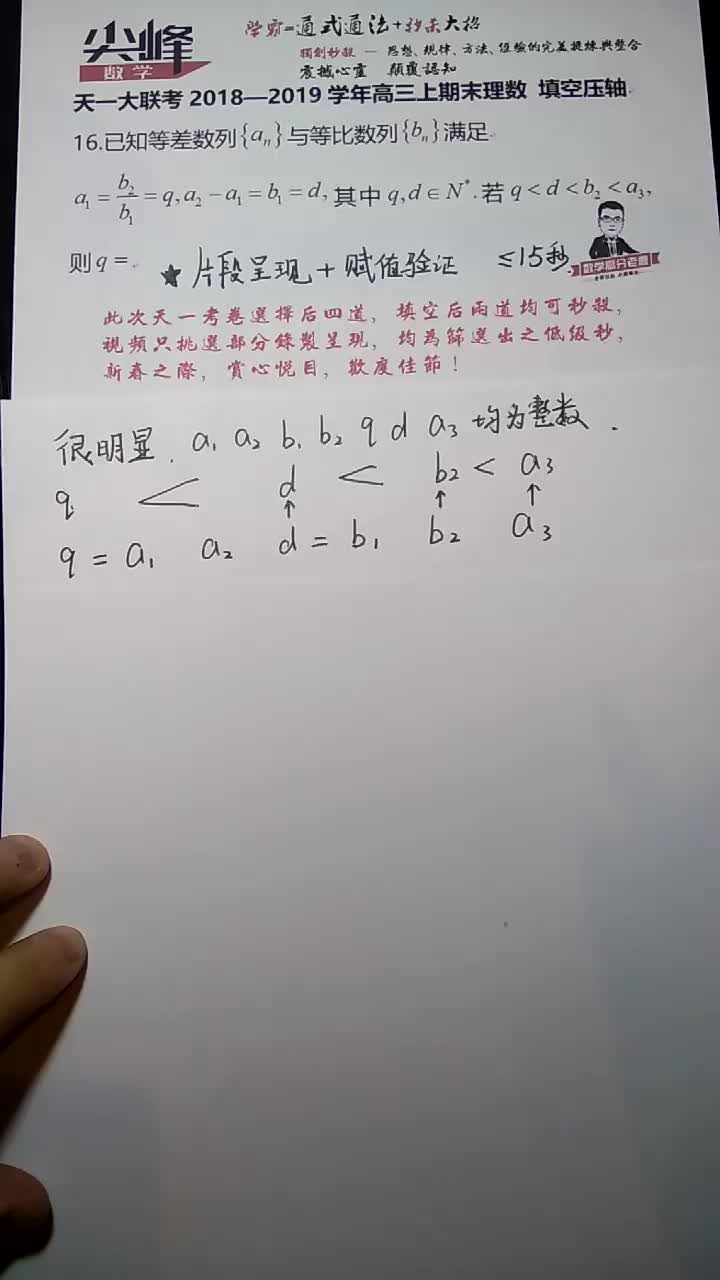 尖峰
数学
学霸=通式通法+秒杀大招
獨創秒殺 — 思想、規律、方法、經驗的完美提煉與整合
震撼心靈 顛覆認知
天一大联考 2018—2019 学年高三上期末理数 填空压轴
16.已知等差数列{aₙ}与等比数列{bₙ}满足
a₁=b₂/b₁=q,a₂-a₁=b₁=d,其中 q,d∈N*.若 q<d<b₂<a₃,
则 q=
★片段呈现+赋值验证 ≤15秒
数学高分老曹
此次天一考卷選擇后四道,填空后兩道均可秒殺,
視頻只挑選部分錄製呈現,均為篩選出之低級秒,
新春之際,賞心悅目,歡度佳節!
很明显. a₁ a₂ b₁ b₂ q d a₃ 均为整数.
q < d < b₂ < a₃
↑ ↑ ↑
q = a₁ a₂ d = b₁ b₂ a₃